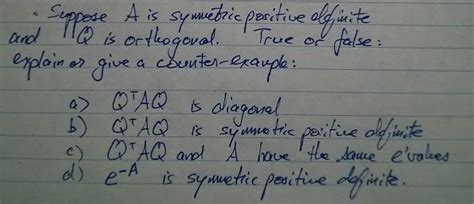 . Suppose A is symmetric positive definite
and Q is orthogonal. True or false:
explain or give a counter-example:
a) QᵀAQ is diagonal
b) QᵀAQ is symmetric positive definite
c) QᵀAQ and A have the same e'values
d) e⁻ᴬ is symmetric positive definite.